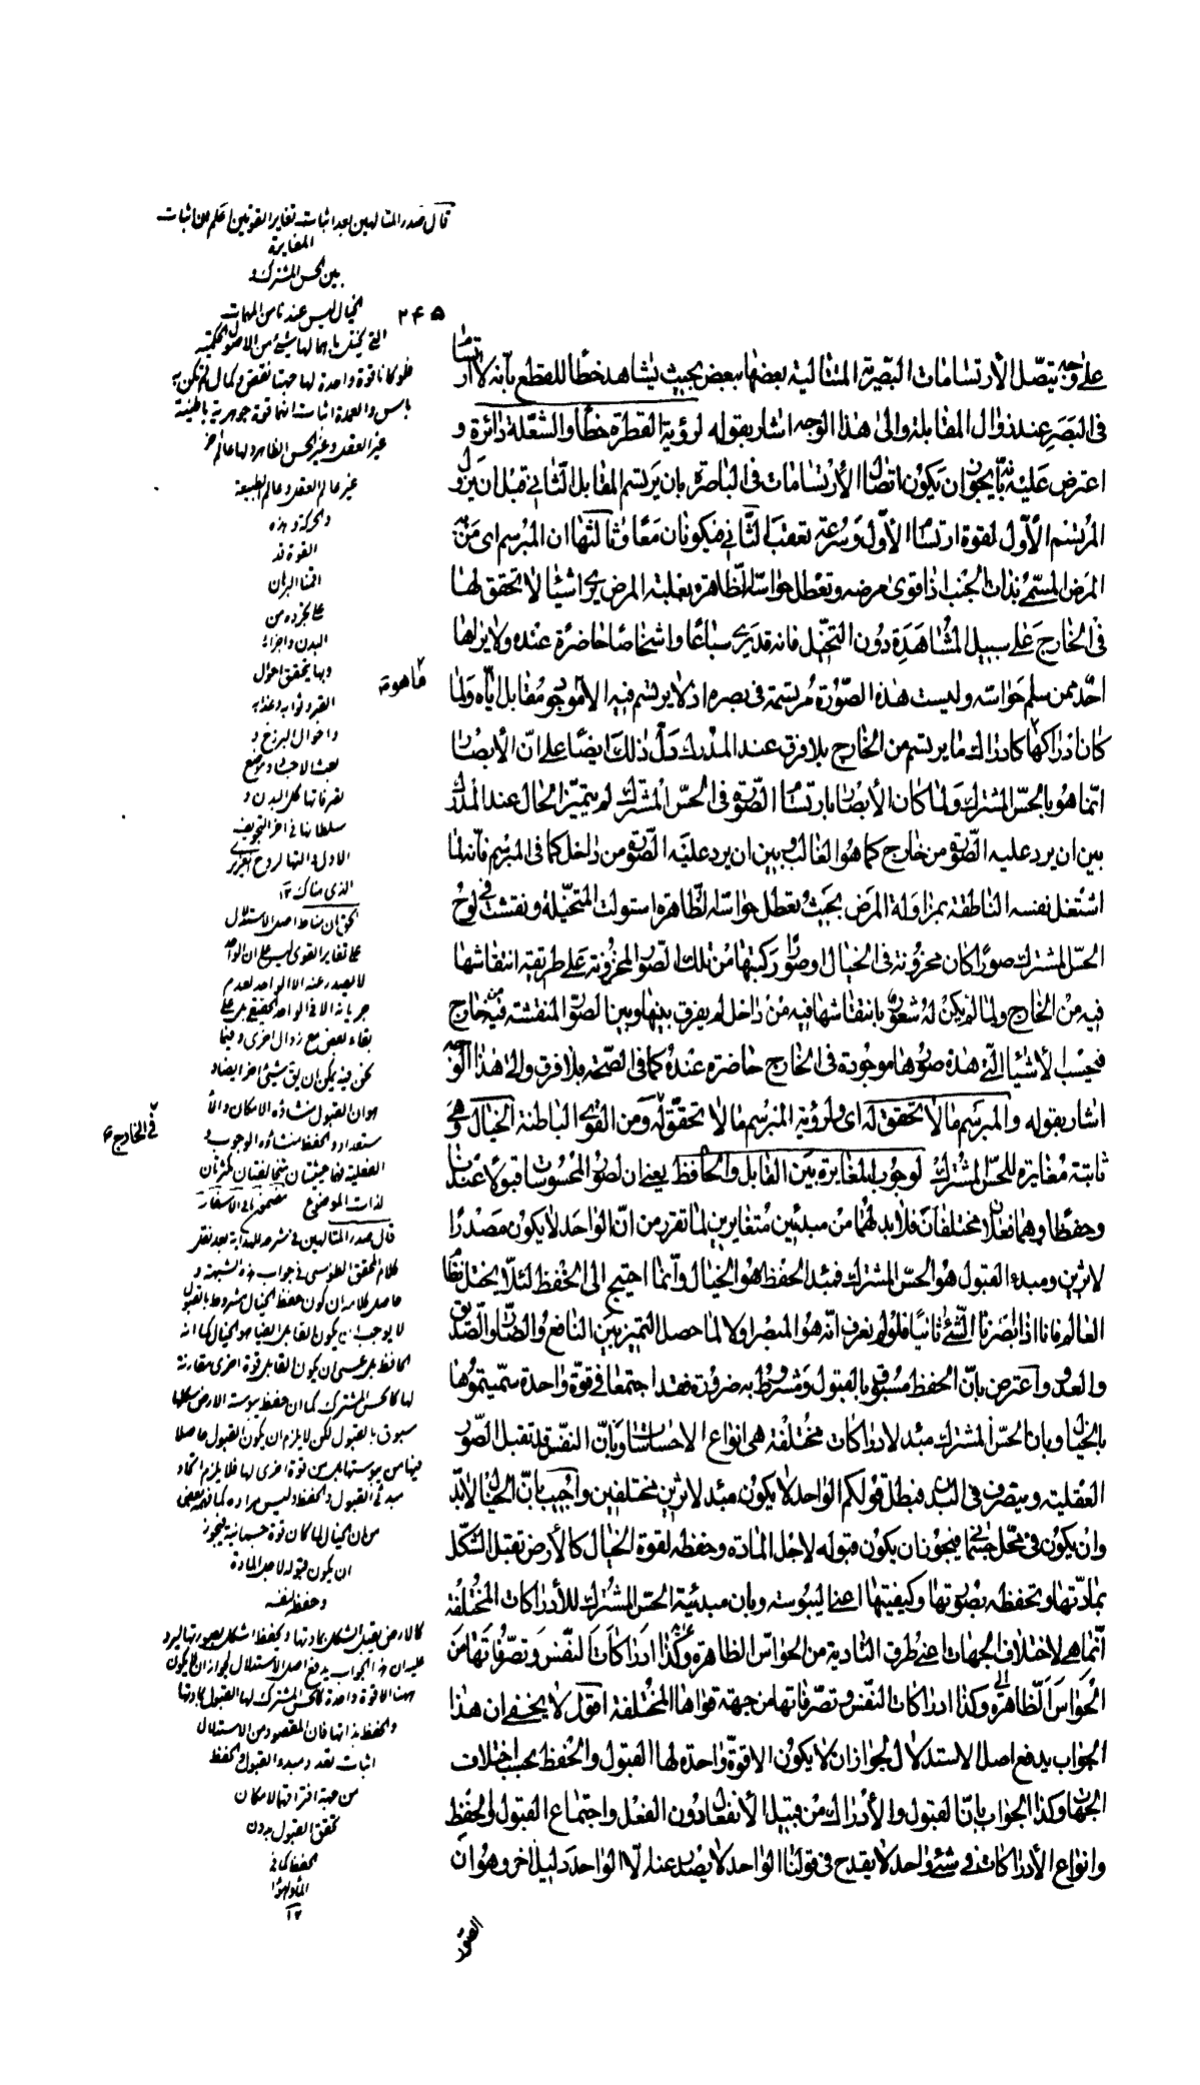 ٢۴۵
على وجه يتصل الأرتسامات البصرية المتتالية بعضها ببعض بحيث يشاهد خطا للقطع بأنه لا ارتسام
فى البصر عند زوال المقابلة والى هذا الوجه اشار بقوله لرؤية القطرة خطا والشعلة دائرة و
اعترض عليه بأنه يجوز ان يكون اتصال الأرتسامات فى الباصرة بان يرتسم المقابل الثانى قبل ان يزول
المرتسم الأول لقوة ارتسام الأول وسرعة تعقب الثانى فيكونان معا وثالثها ان المبرسم اى من به
المرض المسمى بذات الجنب اذا قوى مرضه وتعطل حواسه الظاهرة بغلبة المرض يرى اشياء لا تحقق لها
فى الخارج على سبيل المشاهدة دون التخيل فانه قد يرى سباعا واشخاصا حاضرة عنده ولا يراها
احد ممن سلم حواسه وليست هذه الصورة مرتسمة فى بصره اذ لا يرتسم فيه الا موجود مقابل اياه ولما
كان ادراكها كادراك ما يرتسم من الخارج بلا فرق عند المدرك دل ذلك ايضا على ان الأبصار
انما هو بالحس المشترك ولما كان الأبصار بارتسام الصورة فى الحس المشترك لم يتميز الحال عند المدرك
بين ان يرد عليه الصورة من خارج كما هو الغالب وبين ان يرد عليه الصورة من داخل كما فى المبرسم فانه لما
اشتغل نفسه الناطقة بمزاولة المرض بحيث تعطل حواسه الظاهرة استولت المتخيلة ونقشت فى لوح
الحس المشترك صورا كان مخزونة فى الخيال او صورا ركبتها من تلك الصور المخزونة على طريقة انتقاشها
فيه من الخارج ولما لم يكن له شعور بانتقاشها فيه من داخل لم يفرق بينها وبين الصور المنتقشة فيه من خارج
فيحسب الأشياء التى هذه صورها موجودة فى الخارج حاضرة عنده كما فى الصحة بلا فرق والى هذا الوجه
اشار بقوله والمبرسم ما لا تحقق له اى ولرؤية المبرسم ما لا تحقق له ومن القوى الباطنة الخيال وهى
ثابتة مغايرة للحس المشترك لوجوب المغايرة بين القابل والحافظ يعنى ان لصور المحسوسات قبولا عندنا
وحفظا وهما فعلان مختلفان فلا بد لهما من مبدئين متغايرين لما تقرر من ان الواحد لا يكون مصدرا
لاثرين ومبدء القبول هو الحس المشترك فمبدء الحفظ هو الخيال وانما احتيج الى الحفظ لئلا يختل نظام
العالم فانا اذا ابصرنا الشئ ثانيا فلو لم نعرف انه هو المبصر اولا لما حصل التميز بين النافع والضار والصديق
والعدو واعترض بان الحفظ مسبوق بالقبول ومشروط به ضرورة فقد اجتمعا فى قوة واحدة سميتموها
بالخيال وبان الحس المشترك مبدء لادراكات مختلفة هى انواع الاحساسات وبان النفس تقبل الصور
العقلية ويتصرف فى البدن فبطل قولكم الواحد لا يكون مبدء لاثرين مختلفين واجيب بان الخيال لا بد
وان يكون فى محل جسمانى فيجوز ان يكون قبوله لاجل المادة وحفظه لقوة الخيال كالأرض تقبل الشكل
بمادتها وتحفظه بصورتها وكيفيتها اعنى اليبوسة وبان مبدئية الحس المشترك للأدراكات المختلفة
انما هى لاختلاف الجهات اعنى طرق التادية من الحواس الظاهرة وكذا ادراكات النفس وتصرفاتها من
الحواس الظاهرة وكذا ادراكات النفس وتصرفاتها من جهة قواها المختلفة اقول لا يخفى ان هذا
الجواب يدفع اصل الاستدلال لجواز ان لا يكون الا قوة واحدة لها القبول والحفظ بحسب اختلاف
الجهات وكذا الجواب بان القبول والأدراك من قبيل الأنفعال دون الفعل واجتماع القبول والحفظ
وانواع الأدراكات فى شئ واحد لا يقدح فى قولنا الواحد لا يصدر عنه الا الواحد دليل اخر وهو ان
الصور
قال صدر المتالهين بعد اثبات تغاير القوتين اعلم ان اثبات
المغايرة
بين الحس المشترك و
الخيال ليس عندنا من المهمات
التى يختل باهمالها شئ من الاصول الحكمية
فلو كانا قوة واحدة لها جهتا نقص وكمال لم يكن به
باس والعمدة اثبات انها قوة جوهرية باطنية
غير العقل وغير الحس الظاهر ولها عالم اخر
غير عالم العقل وعالم الطبيعة
والحركة وهذه
القوة قد
اقمنا البرهان
على تجرده من
البدن واجزائه
وبها يتحقق احوال
القبر وثوابه وعذابه
واحوال البرزخ و
بعث الاجساد وموضع
تصرفاتها كل البدن و
سلطانها فى اخر التجويف
الاول والتها الروح الغريزى
الذى هناك ١٢
الحق ان مناط اصل الاستدلال
على تغاير القوى ليس على ان الواحد
لا يصدر عنه الا الواحد لعدم
جريانه الا فى الواحد الحقيقى بل على
بقاء بعض مع زوال اخرى وفيما
نحن فيه يمكن ان يق شئ اخر ايضا و
هو ان القبول منشاؤه الامكان والا
ستعداد والحفظ منشاؤه الوجوب و
الفعلية فهما حيثيتان متخالفتان مكثرتان
لذات الموضوع
قال صدر المتالهين فى شرحه للهداية بعد نقل
كلام المحقق الطوسى فى جواب هذه الشبهة و
حاصل كلامه ان كون حفظ الخيال مشروطا بالقبول
لا يوجب ان يكون القابل ايضا هو الخيال كما انه
الحافظ بل عسى ان يكون القابل قوة اخرى مقارنة
لها كالحس المشترك كما ان حفظ يبوسة الارض شكلها
مسبوق بالقبول لكن لا يلزم ان يكون القبول حاصلا
فيها من يبوستها بل من قوة اخرى لها فلا يلزم اتحاد
مبدئى القبول والحفظ وليس مراده كما فهمه بعض
من ان الخيال لما كان قوة جسمانية فيجوز
ان يكون قبوله لاجل المادة
وحفظه لنفسه
كالارض تقبل الشكل بمادتها وتحفظ الشكل بصورتها ليرد
عليه ان هذا الجواب يدفع اصل الاستدلال لجواز ان لا يكون
ههنا الا قوة واحدة كالحس المشترك لها القبول بمادتها
والحفظ بذاتها فان المقصود من الاستدلال
اثبات تعدد مبدء القبول والحفظ
من جهة افتراقهما لامكان
تحقق القبول بدون
الحفظ كما فى
الماء والهواء
١٢
ماهوية
فى الخارج